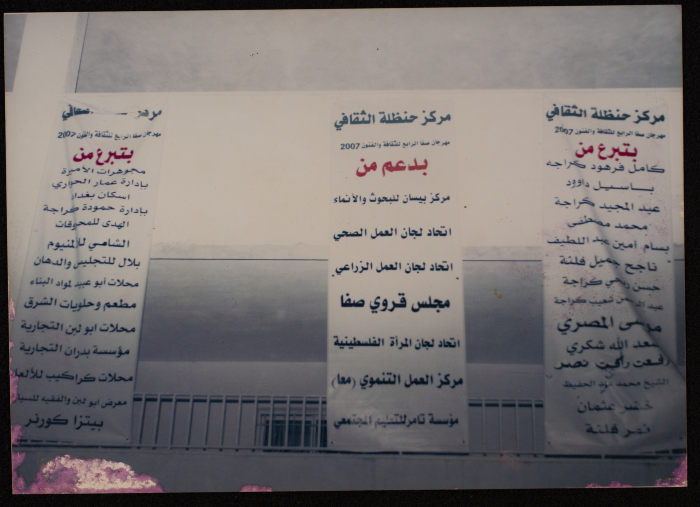 مركز حنظلة الثقافي
مهرجان صفا الرابع للثقافة والفنون 2007
بتبرع من
كامل فرهود كراجه
باسيل داوود
عبد المجيد كراجة
محمد مصطفى
بسام أمين عبد اللطيف
ناجح جميل فلنة
حسن كراجة
عبد شعيب كراجة
المصري
سعد الله شكري
رفعت رأفت نصر
الشيخ محمد عبد الحفيظ
خضر عثمان
نمر فلنة
مركز حنظلة الثقافي
مهرجان صفا الرابع للثقافة والفنون 2007
بدعم من
مركز بيسان للبحوث والأنماء
اتحاد لجان العمل الصحي
اتحاد لجان العمل الزراعي
مجلس قروي صفا
اتحاد لجان المرأة الفلسطينية
مركز العمل التنموي (معا)
مؤسسة تامر للتعليم المجتمعي
مهرجان صفا الرابع للثقافة والفنون 2007
بتبرع من
مجوهرات الأميرة
بادارة عمار الحواري
اسكان بغداد
بادارة حمودة كراجة
الهدى للمحروقات
الشامي للالمنيوم
بلال للتجليس والدهان
محلات أبو عبيد لمواد البناء
مطعم وحلويات الشرق
محلات ابو لبن التجارية
مؤسسة بدران التجارية
محلات كراكيب للألعا
معرض ابو لبن والفقيه
بيتزا كورنر